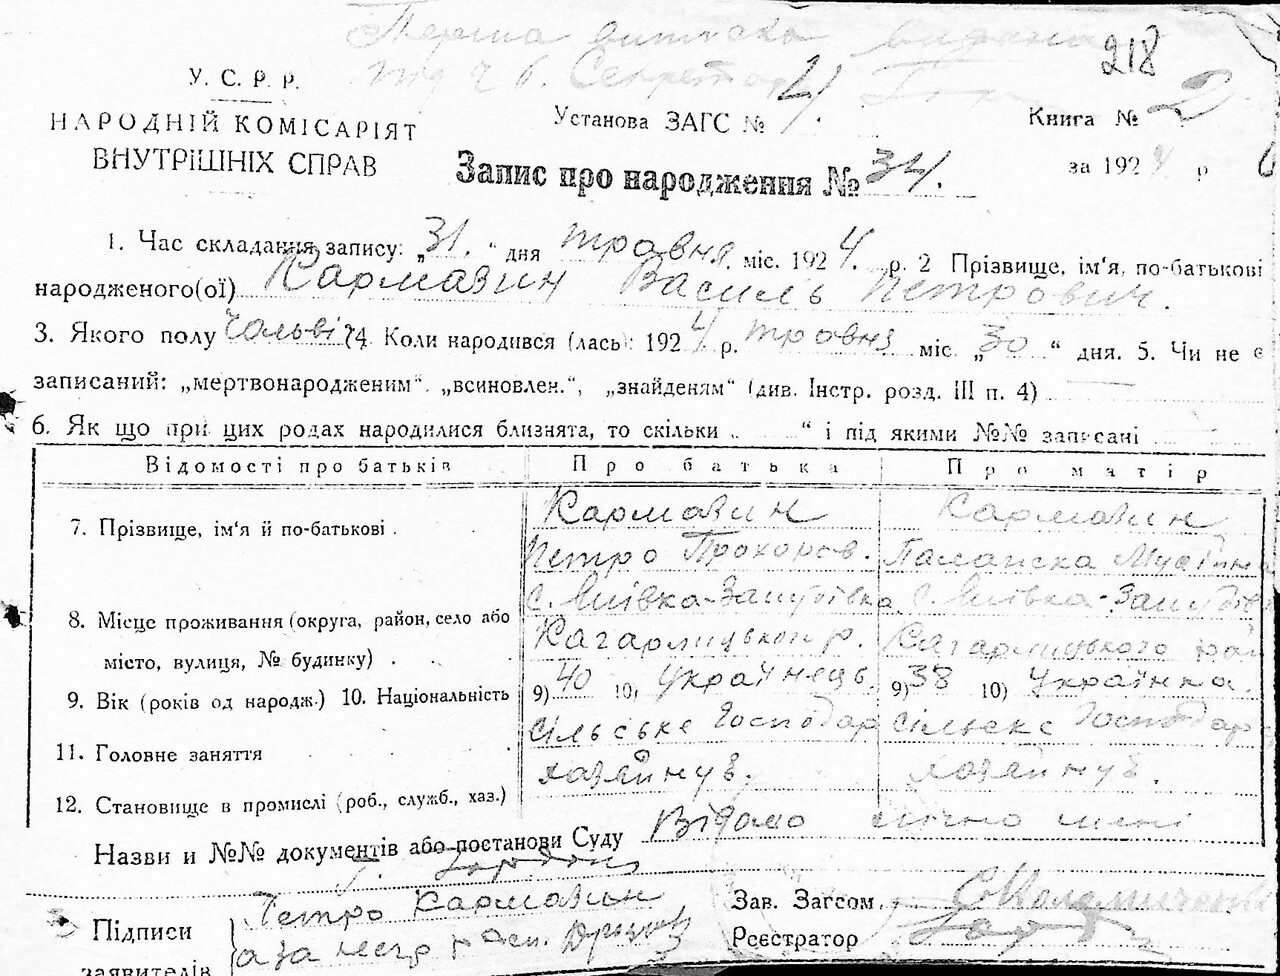 Перша виписка видана
218
У. С. Р. Р.
НАРОДНІЙ КОМІСАРІЯТ
ВНУТРІШНІХ СПРАВ
Установа ЗАГС № 4.
Книга № 2
за 1924 р
Запис про народження № 34.
1. Час складання запису: „31." дня травня. міс. 1924. р. 2 Прізвище, ім'я, по-батькові
народженого(ої) Кармазин Василь Петрович.
3. Якого полу чолвіч 4. Коли народився (лась): 1924 р. травня міс. „30" дня. 5. Чи не є
записаний: „мертвонародженим". „всиновлен.", „знайденям" (див. Інстр. розд. III п. 4)
6. Як що при цих родах народилися близнята, то скільки „ " і під якими №№ записані
Відомості про батьків Про батька Про матір
7. Прізвище, ім'я й по-батькові . Кармазин Кармазин
Петро Прохоров.
8. Місце проживання (округа, район, село або
місто, вулиця, № будинку) . Кагарлицьк р. Кагарлицького
9. Вік (років од народж.) 10. Національність 9) 40 10) Українець. 9) 38 10) Українка.
11. Головне заняття сільське господар сільське господар
12. Становище в промислі (роб., служб., хаз.) хазяйнув. хазяйнув.
Назви и №№ документів або постанови Суду Відомо лічно мені
Підписи
заявителів
Петро Кармазин
Зав. Загсом.
Реєстратор